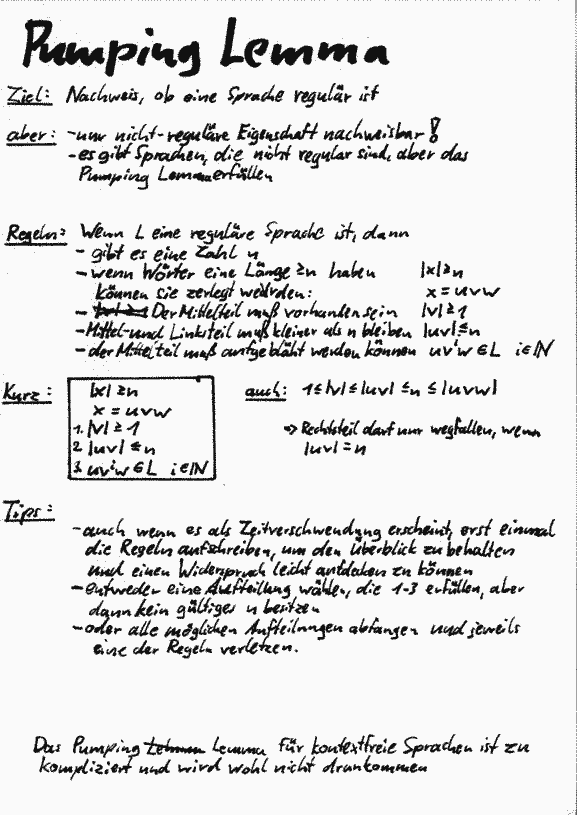 Pumping Lemma
Ziel: Nachweis, ob eine Sprache regulär ist
aber: - nur nicht-reguläre Eigenschaft nachweisbar!
- es gibt Sprachen, die nicht regulär sind, aber das
Pumping Lemma erfüllen
Regeln: Wenn L eine reguläre Sprache ist, dann
- gibt es eine Zahl n
- wenn Wörter eine Länge ≥n haben |x|≥n
können sie zerlegt werden: x = uvw
- Der Mittelteil muß vorhanden sein |v|≥1
- Mittel- und Linksteil muß kleiner als n bleiben |uv|≤n
- der Mittelteil muß aufgebläht werden können uvⁱw ∈ L i∈ℕ
Kurz: |x| ≥n auch: 1≤|v|≤|uv| ≤n ≤|uvw|
x = uvw
1. |v| ≥ 1 => Rechtsteil darf nur wegfallen, wenn
2. |uv| ≤n |uv| = n
3. uvⁱw ∈ L i∈ℕ
Tips:
- auch wenn es als Zeitverschwendung erscheint, erst einmal
die Regeln aufschreiben, um den Überblick zu behalten
und einen Widerspruch leicht entdecken zu können
- entweder eine Aufteilung wählen, die 1-3 erfüllen, aber
dann kein gültiges n besitzen
- oder alle möglichen Aufteilungen abfangen und jeweils
eine der Regeln verletzen.
Das Pumping Lemma für kontextfreie Sprachen ist zu
kompliziert und wird wohl nicht drankommen